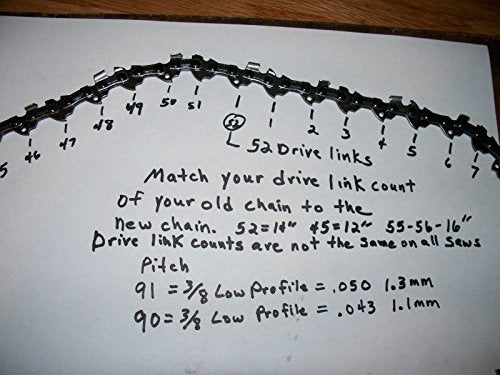 5 46 47 48 49 50 51 52 1 2 3 4 5 6 7
52 Drive links
Match your drive link count
of your old chain to the
new chain. 52=14" 45=12" 55-56-16"
Drive link counts are not the same on all saws
Pitch
91 = 3/8 Low Profile = .050 1.3mm
90 = 3/8 Low Profile = .043 1.1mm